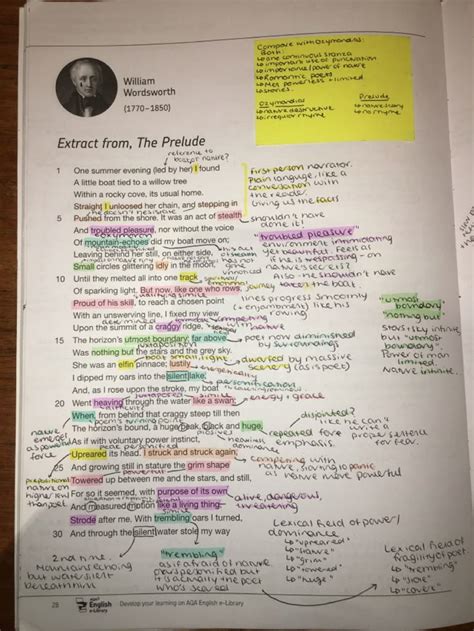 William
Wordsworth
(1770–1850)
Compare with Ozymandias:
Both:
↳ one continuous stanza
↳ important use of punctuation
↳ importance/power of nature
↳ Romantic poets
↳ stories.
Ozymandias
Prelude
↳ nature destructive
↳ irregular rhyme
↳ no rhyme
Extract from, The Prelude
reference to
boat or nature?
1 One summer evening (led by her) I found
A little boat tied to a willow tree
Within a rocky cove, its usual home.
Straight I unloosed her chain, and stepping in
5 Pushed from the shore. It was an act of stealth
And troubled pleasure, nor without the voice
Of mountain-echoes did my boat move on;
Leaving behind her still, on either side,
Small circles glittering idly in the moon,
10 Until they melted all into one track
Of sparkling light. But now, like one who rows,
Proud of his skill, to reach a chosen point
With an unswerving line, I fixed my view
Upon the summit of a craggy ridge,
15 The horizon's utmost boundary; far above
Was nothing but the stars and the grey sky.
She was an elfin pinnace; lustily
I dipped my oars into the silent lake,
And, as I rose upon the stroke, my boat
20 Went heaving through the water like a swan;
When, from behind that craggy steep till then
The horizon's bound, a huge peak, black and huge,
As if with voluntary power instinct,
Upreared its head. I struck and struck again,
25 And growing still in stature the grim shape
Towered up between me and the stars, and still,
For so it seemed, with purpose of its own
And measured motion like a living thing,
Strode after me. With trembling oars I turned,
30 And through the silent water stole my way
first person narrator.
Plain language, like a
conversation with
the reader.
Giving us the facts
shouldn't have
done it!
"troubled pleasure"
environment intimidating
yet beautiful. Feels as
if he is trespassing - on
nature's secrets?
Also he shouldn't have
taken the boat.
lines progress smoothly
(enjambment) like his
rowing
"utmost
boundary"
"nothing but"
Power of man
limited.
Nature infinite.
poet now diminished
by surroundings
dwarfed by massive
scenery (as is poet)
personification
energy + grace
disjointed?
repeated for
emphasis.
competing with
nature, starting to panic
as nature more powerful
alive, dangerous,
threatening
simile
Lexical field of power/
dominance
↳ "upreared"
↳ "grim"
↳ "towered"
↳ "huge"
Lexical field of
fragility of poet
↳ "trembling"
↳ "stole"
2nd time.
Mountains echoing
but water silent
beneath him
"trembling"
as if afraid of nature.
it is actually the poet
who's scared
28
AQA
English
e-Library
Develop your learning on AQA English e-Library